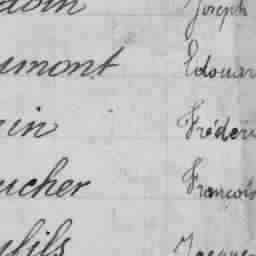 doin Joseph
umont Edouar
in Frédéri
ucher François
fils Jacques